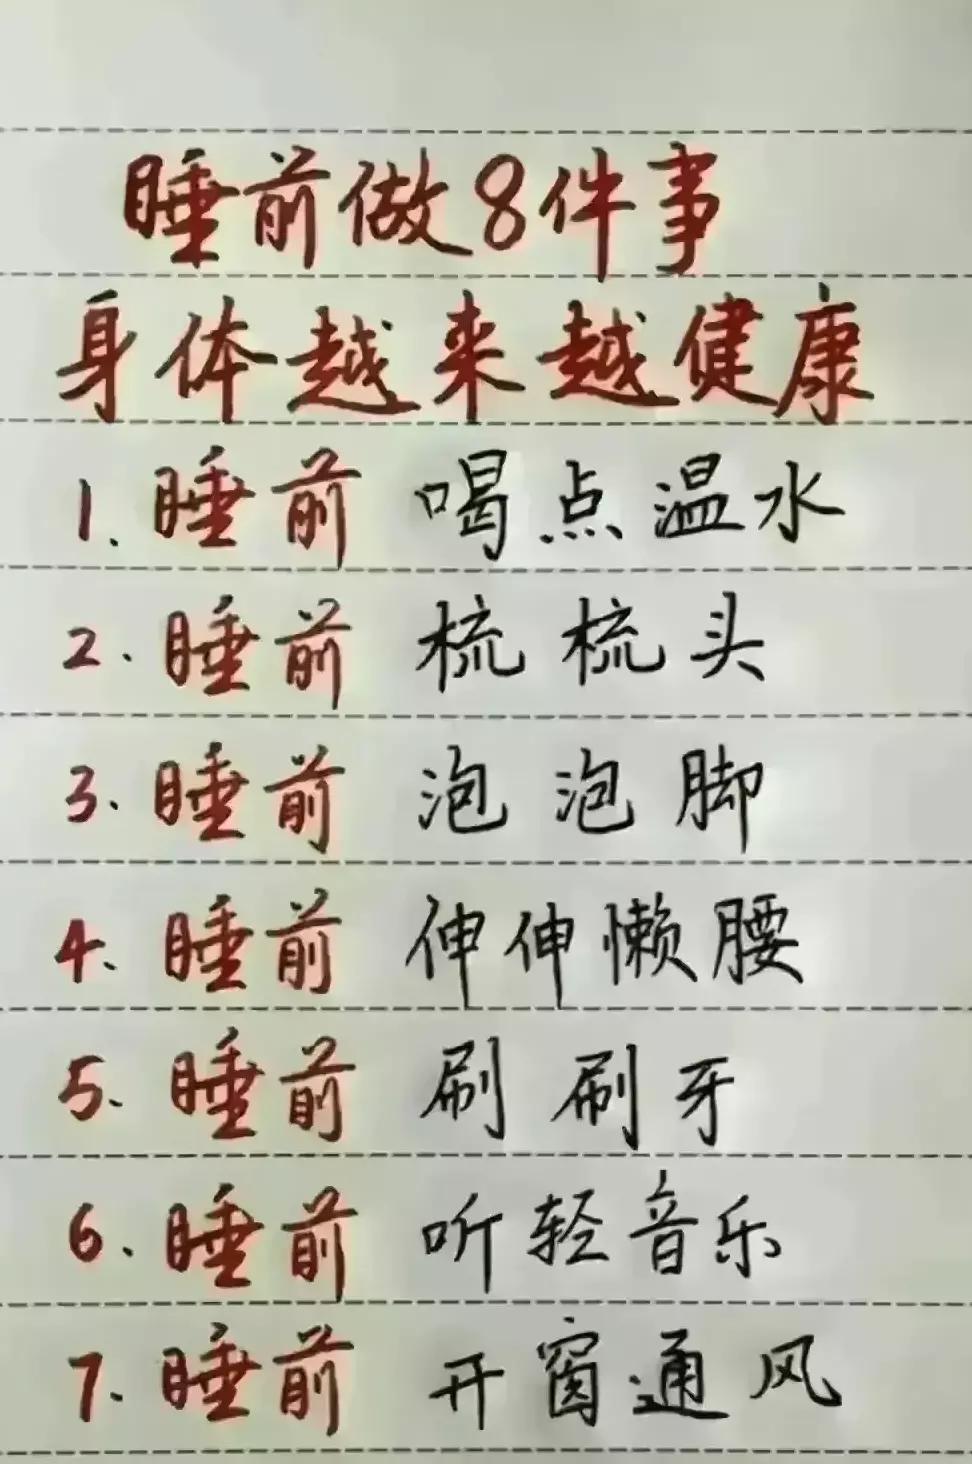 睡前做8件事
身体越来越健康
1、睡前 喝点温水
2、睡前 梳梳头
3、睡前 泡泡脚
4、睡前 伸伸懒腰
5、睡前 刷刷牙
6、睡前 听轻音乐
7、睡前 开窗通风